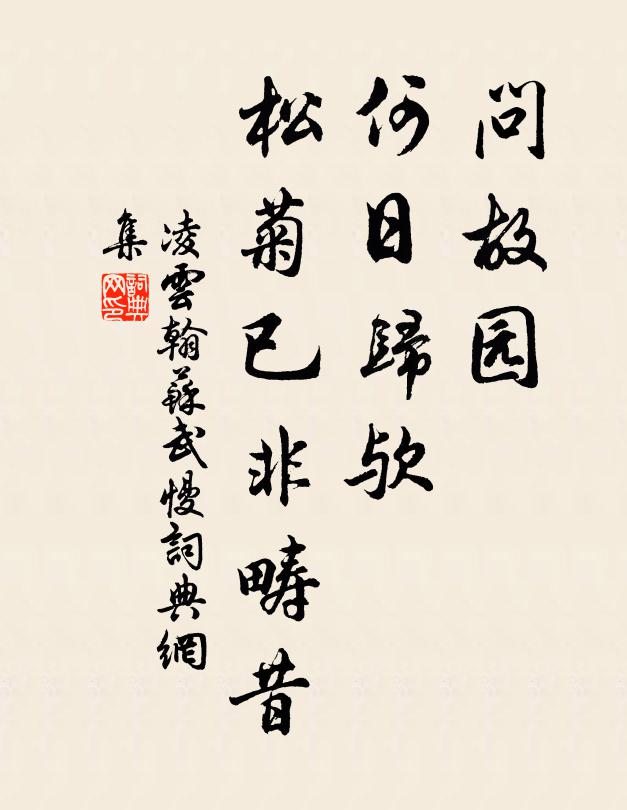 问故园
何日歸欤
松菊已非疇昔
凌雲翰蘇武慢詞典網
集
詞典网印